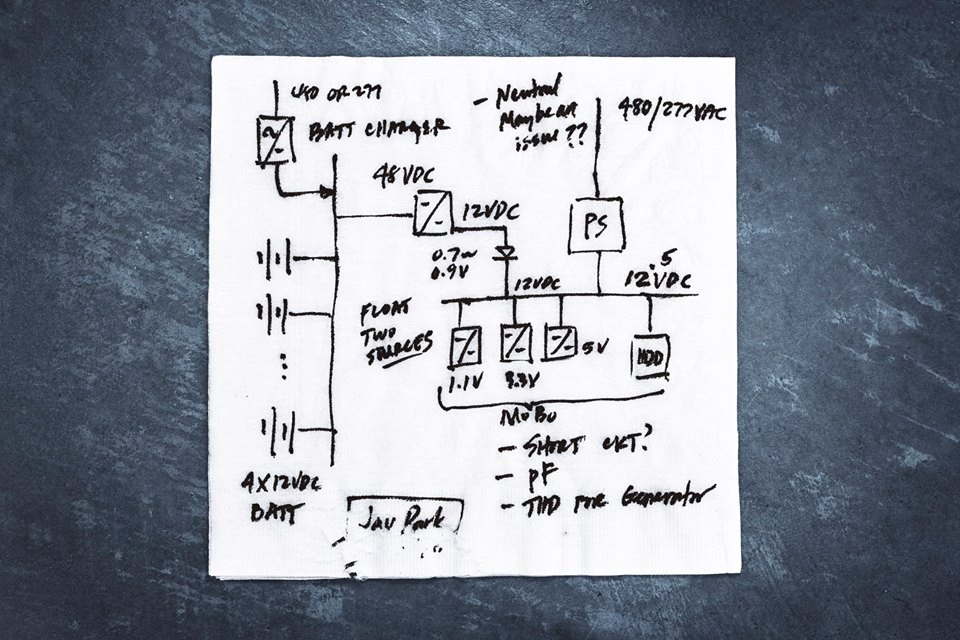 480 OR 277
BATT CHARGER
- Neutral
Maybe an
issue??
480/277VAC
48VDC
12VDC
PS
0.7~
0.9V
12VDC
12.5VDC
FLOAT
TWO
SOURCES
1.1V
3.3V
5V
HDD
MOBO
- SHORT CKT?
- PF
- THD FOR Generator
4X12VDC
BATT
Jay Park